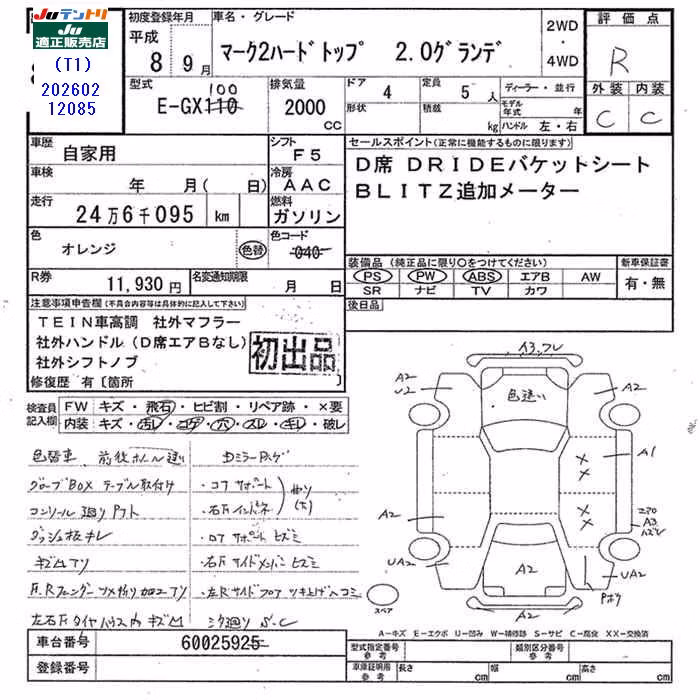 JUテントリ
JU適正販売店
(T1)
202602
12085
初度登録年月
平成
8 9月
車名・グレード
マーク2ハードトップ 2.0グランデ
2WD・4WD
評価点
R
外装 内装
C C
型式
100
E-GX110
排気量
2000
CC
ドア 4
形状
定員 5人
積載 kg
ディーラー・並行
モデル年式 年
ハンドル 左・右
車歴
自家用
シフト
F5
車検
年 月( 日)
冷房
AAC
走行
24万6千095 km
燃料
ガソリン
色
オレンジ
色替
色コード
040
R券
11,930円
名変通知期限
月 日
セールスポイント(正常に機能するものに限ります)
D席 DRIDEバケットシート
BLITZ追加メーター
装備品(純正品に限り○をつけてください)
新車保証書
PS PW ABS エアB AW
有・無
SR ナビ TV カワ
後日品
注意事項申告欄(不具合内容等は具体的に記入して下さい)
TEIN車高調 社外マフラー
社外ハンドル(D席エアBなし)
社外シフトノブ
初出品
修復歴 有〔箇所 〕
検査員記入欄
FW キズ・飛石・ヒビ割・リペア跡・×要
内装 キズ・汚レ・コゲ・穴・スレ・キレ・破レ
色替車 前後ホイル違い
グローブBOX テーブル取付け
ダッシュ板キレ
キズ凹アリ
Dミラー
・コアサポート
・石Fインドネ
曲り
・ロアサポート ヒズミ
・右F サイドメンバー ヒズミ
・左Rサイドフロア ツキ上ゲヘコミ
ミク廻り S-C
A3.フレ
A2
U2
色違い
A2
A1
A3
A2
UA2
A2
UA2
A2
スペア
A-キズ E-エクボ U-凹み W-補修跡 S-サビ C-腐食 XX-交換済
車台番号
60025925
登録番号
型式指定番号 参考
類別区分番号 参考
車庫証明用 参考
長さ cm 幅 cm 高さ cm